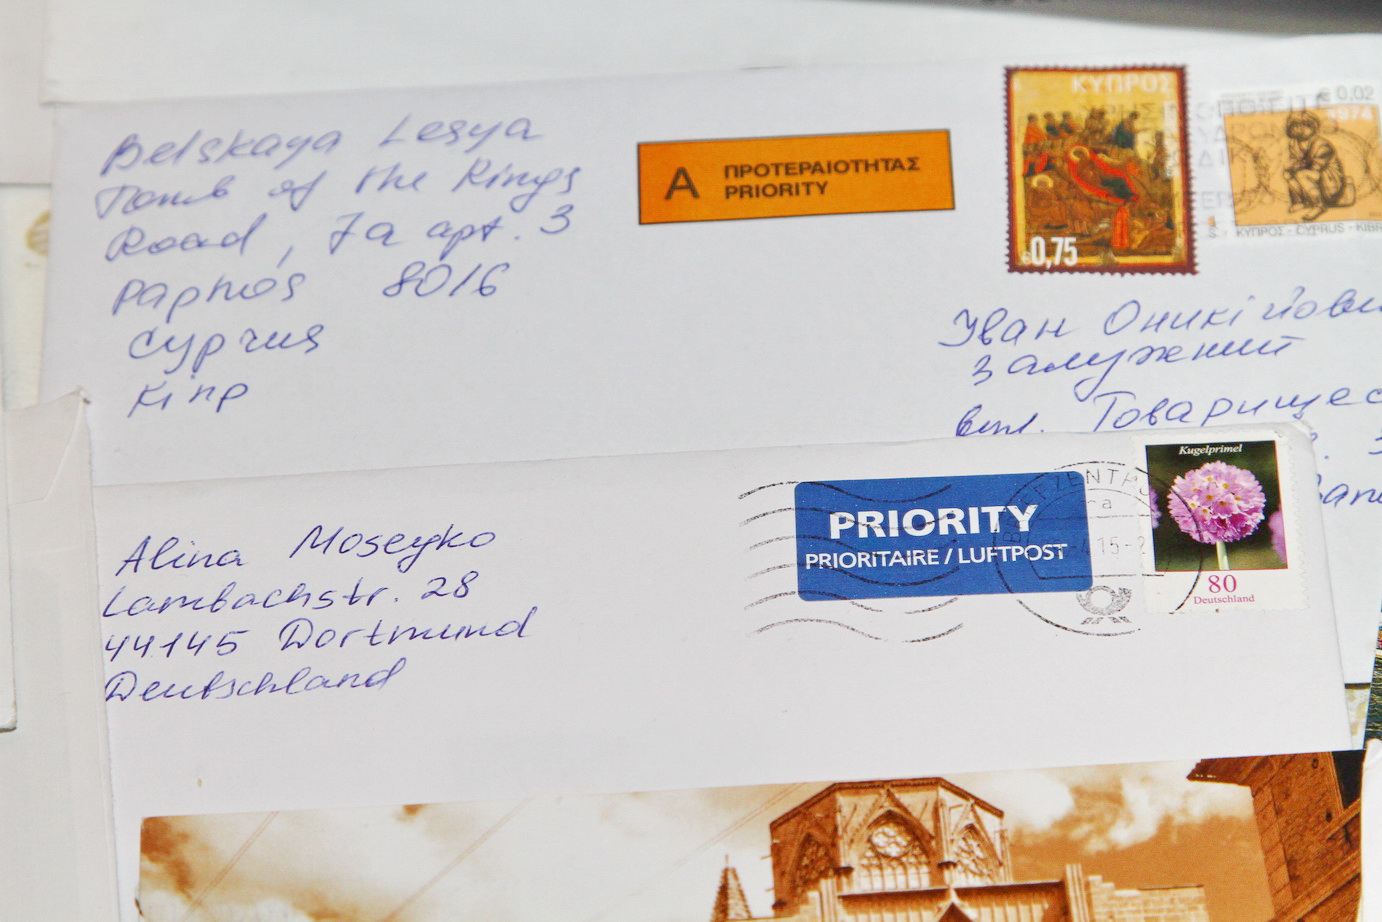 Belskaya Lesya
Tomb of the Kings
Road, 7a apt. 3
Paphos 8016
Cyprus
Кіпр
A ΠΡΟΤΕΡΑΙΟΤΗΤΑΣ
PRIORITY
ΚΥΠΡΟΣ
€0,75
€0,02
1974
ΚΥΠΡΟΣ - CYPRUS - KIBR
Іван Оникійови
Залужний
вул. Товарищес
Alina Moseyko
Lambachstr. 28
44145 Dortmund
Deutschland
PRIORITY
PRIORITAIRE / LUFTPOST
BRIEFZENTRUM
a
15-2
Kugelprimel
80
Deutschland